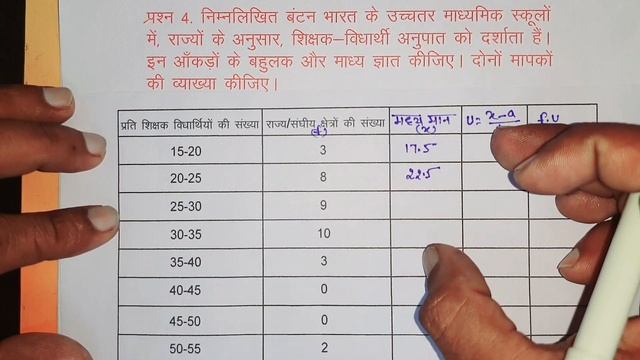 प्रश्न 4. निम्नलिखित बंटन भारत के उच्चतर माध्यमिक स्कूलों
में, राज्यों के अनुसार, शिक्षक–विधार्थी अनुपात को दर्शाता हैं।
इन आँकड़ों के बहुलक और माध्य ज्ञात कीजिए। दोनों मापकों
की व्याख्या कीजिए।
प्रति शिक्षक विधार्थियों की संख्या राज्य/संघीय क्षेत्रों की संख्या (f) मध्य मान (x) U= x-a f.u
15-20 3 17.5
20-25 8 22.5
25-30 9
30-35 10
35-40 3
40-45 0
45-50 0
50-55 2